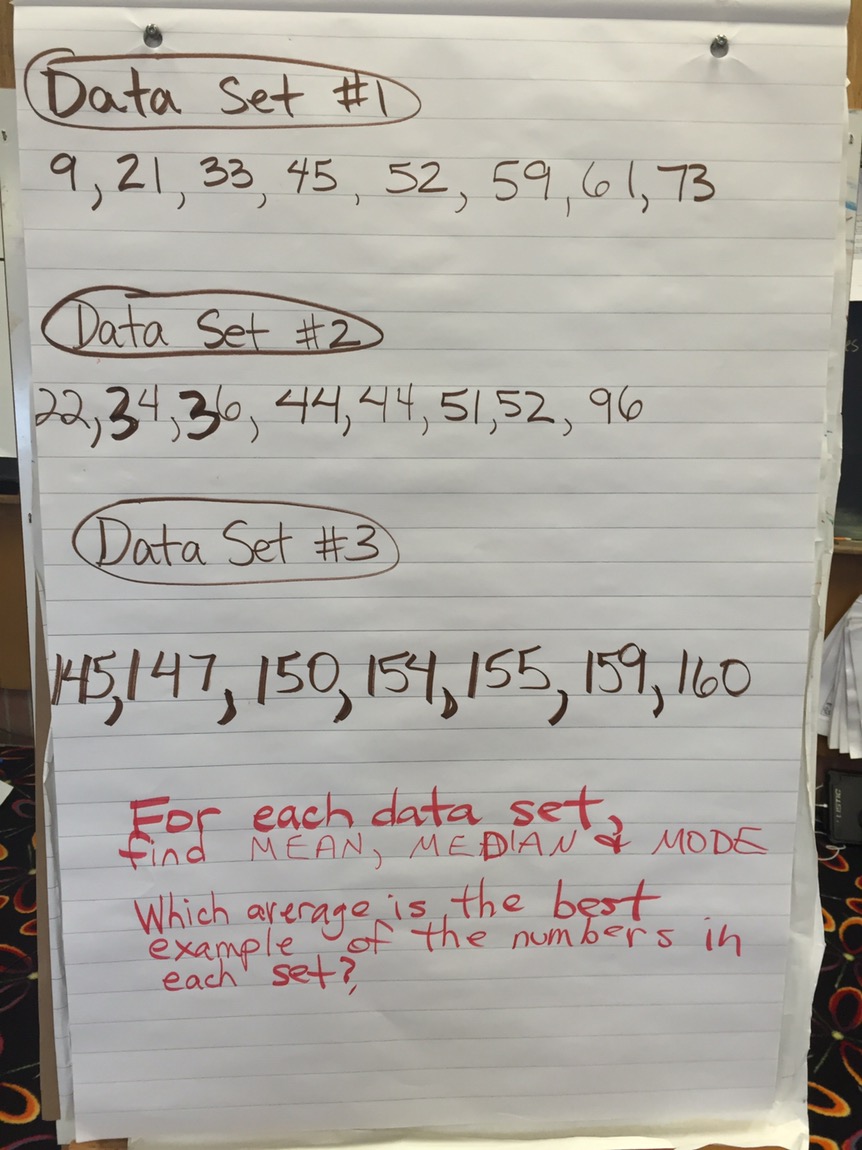 Data Set #1
9, 21, 33, 45, 52, 59, 61, 73
Data Set #2
22, 34, 36, 44, 44, 51, 52, 96
Data Set #3
145, 147, 150, 154, 155, 159, 160
For each data set,
find MEAN, MEDIAN & MODE
Which average is the best
example of the numbers in
each set?